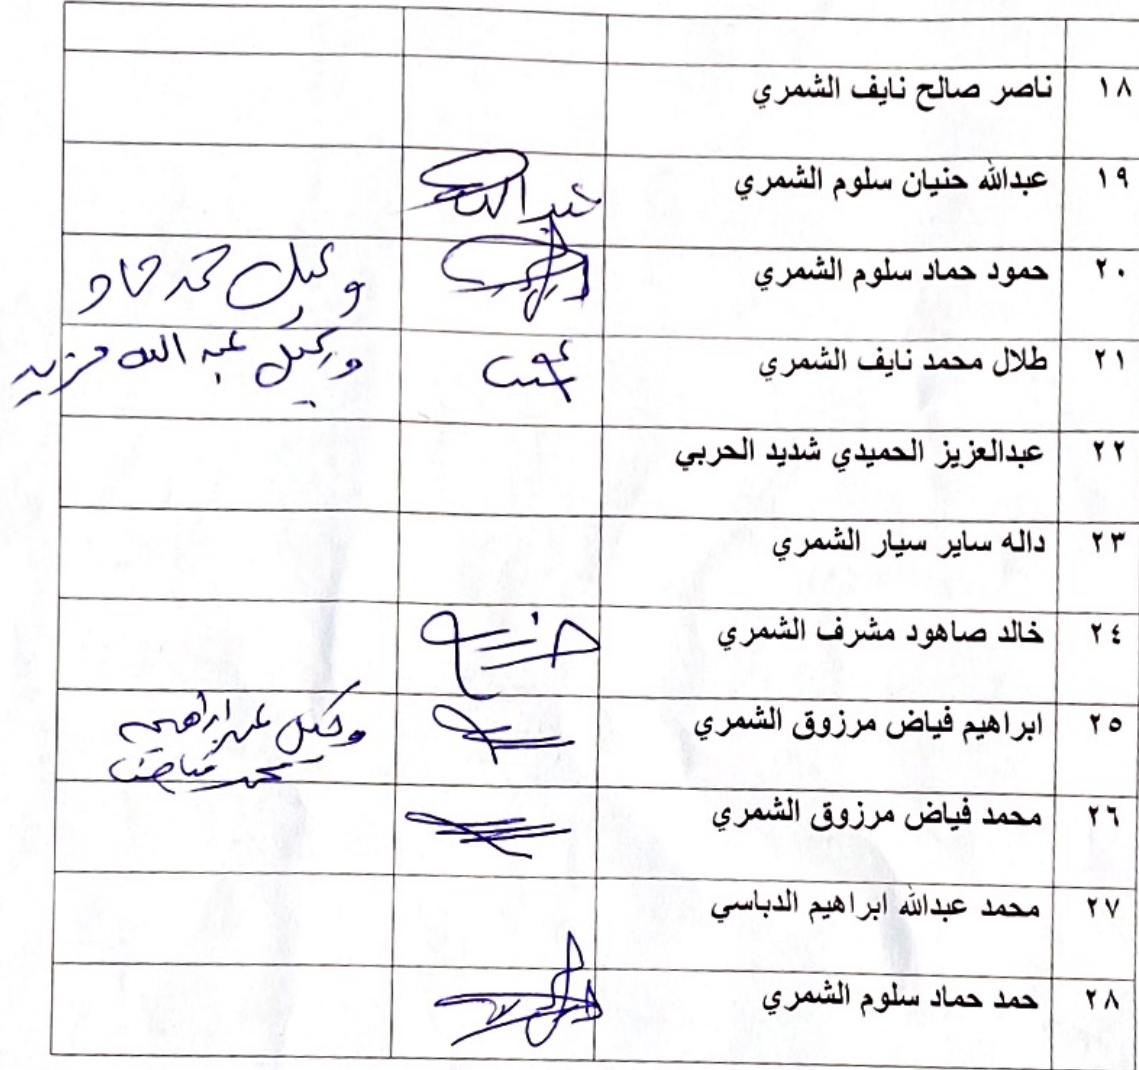 ١٨ ناصر صالح نايف الشمري
١٩ عبدالله حنيان سلوم الشمري عبدالله
٢٠ حمود حماد سلوم الشمري وكيل حمد حماد
٢١ طلال محمد نايف الشمري وكيل عبد الله مزيد
٢٢ عبدالعزيز الحميدي شديد الحربي
٢٣ داله ساير سيار الشمري
٢٤ خالد صاهود مشرف الشمري
٢٥ ابراهيم فياض مرزوق الشمري وكيل عن ابراهيم
محمد فياض
٢٦ محمد فياض مرزوق الشمري
٢٧ محمد عبدالله ابراهيم الدباسي
٢٨ حمد حماد سلوم الشمري